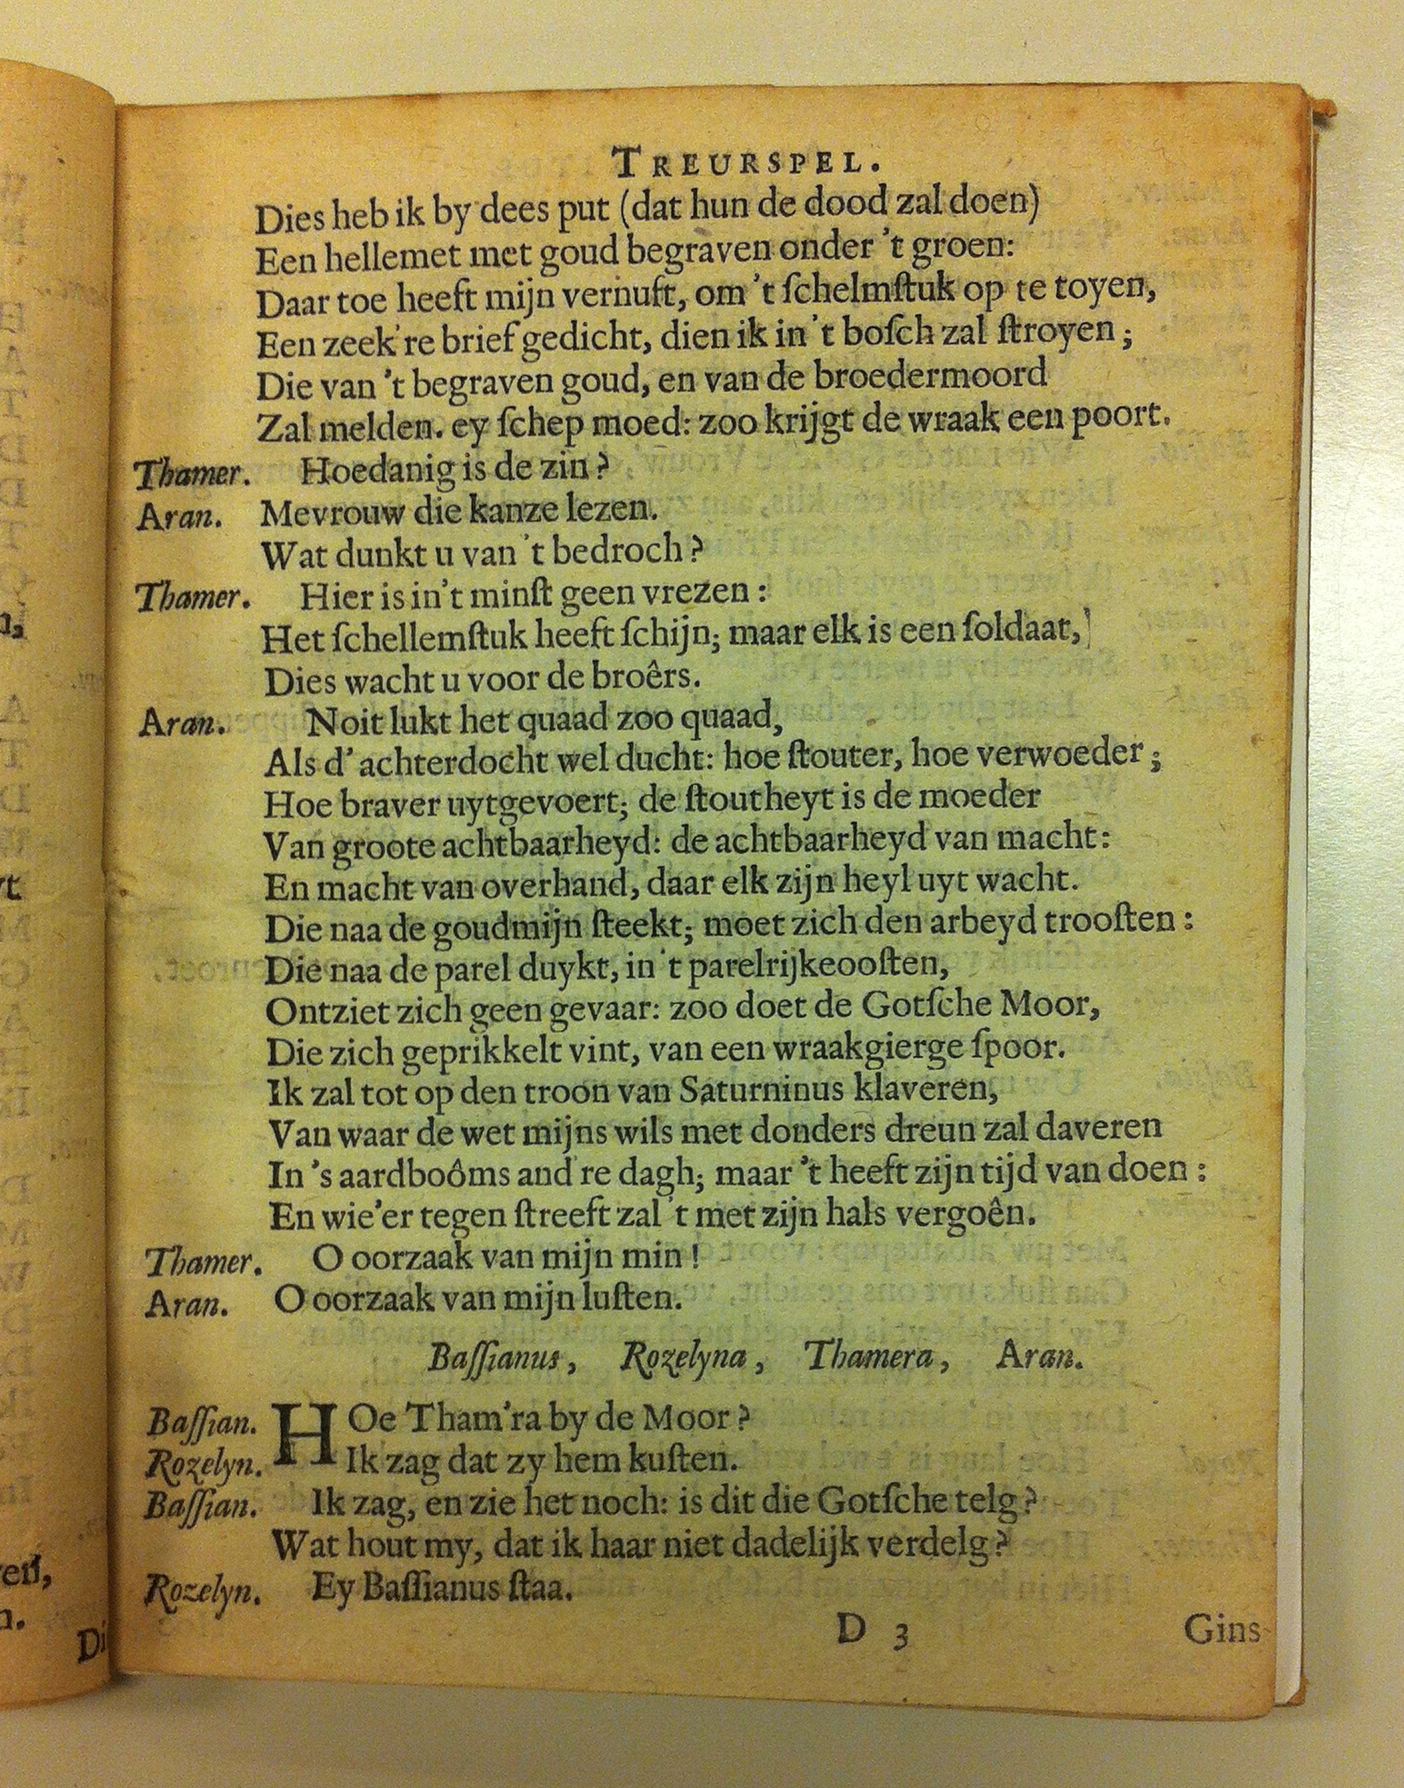 TREURSPEL.
Dies heb ik by dees put (dat hun de dood zal doen)
Een hellemet met goud begraven onder 't groen:
Daar toe heeft mijn vernuft, om 't ſchelmſtuk op te toyen,
Een zeek're brief gedicht, dien ik in 't boſch zal ſtroyen;
Die van 't begraven goud, en van de broedermoord
Zal melden. ey ſchep moed: zoo krijgt de wraak een poort.
Thamer. Hoedanig is de zin?
Aran. Mevrouw die kanze lezen.
Wat dunkt u van 't bedroch?
Thamer. Hier is in't minſt geen vrezen:
Het ſchellemſtuk heeft ſchijn; maar elk is een ſoldaat,
Dies wacht u voor de broêrs.
Aran. Noit lukt het quaad zoo quaad,
Als d'achterdocht wel ducht: hoe ſtouter, hoe verwoeder;
Hoe braver uytgevoert; de ſtoutheyt is de moeder
Van groote achtbaarheyd: de achtbaarheyd van macht:
En macht van overhand, daar elk zijn heyl uyt wacht.
Die naa de goudmijn ſteekt; moet zich den arbeyd trooſten:
Die naa de parel duykt, in 't parelrijkeooſten,
Ontziet zich geen gevaar: zoo doet de Gotſche Moor,
Die zich geprikkelt vint, van een wraakgierge ſpoor.
Ik zal tot op den troon van Saturninus klaveren,
Van waar de wet mijns wils met donders dreun zal daveren
In 's aardboôms and're dagh; maar 't heeft zijn tijd van doen:
En wie'er tegen ſtreeft zal 't met zijn hals vergoên.
Thamer. O oorzaak van mijn min!
Aran. O oorzaak van mijn luſten.
Baſſianus, Rozelyna, Thamera, Aran.
Baſſian. HOe Tham'ra by de Moor?
Rozelyn. Ik zag dat zy hem kuſten.
Baſſian. Ik zag, en zie het noch: is dit die Gotſche telg?
Wat hout my, dat ik haar niet dadelijk verdelg?
Rozelyn. Ey Baſſianus ſtaa.
D 3 Gins